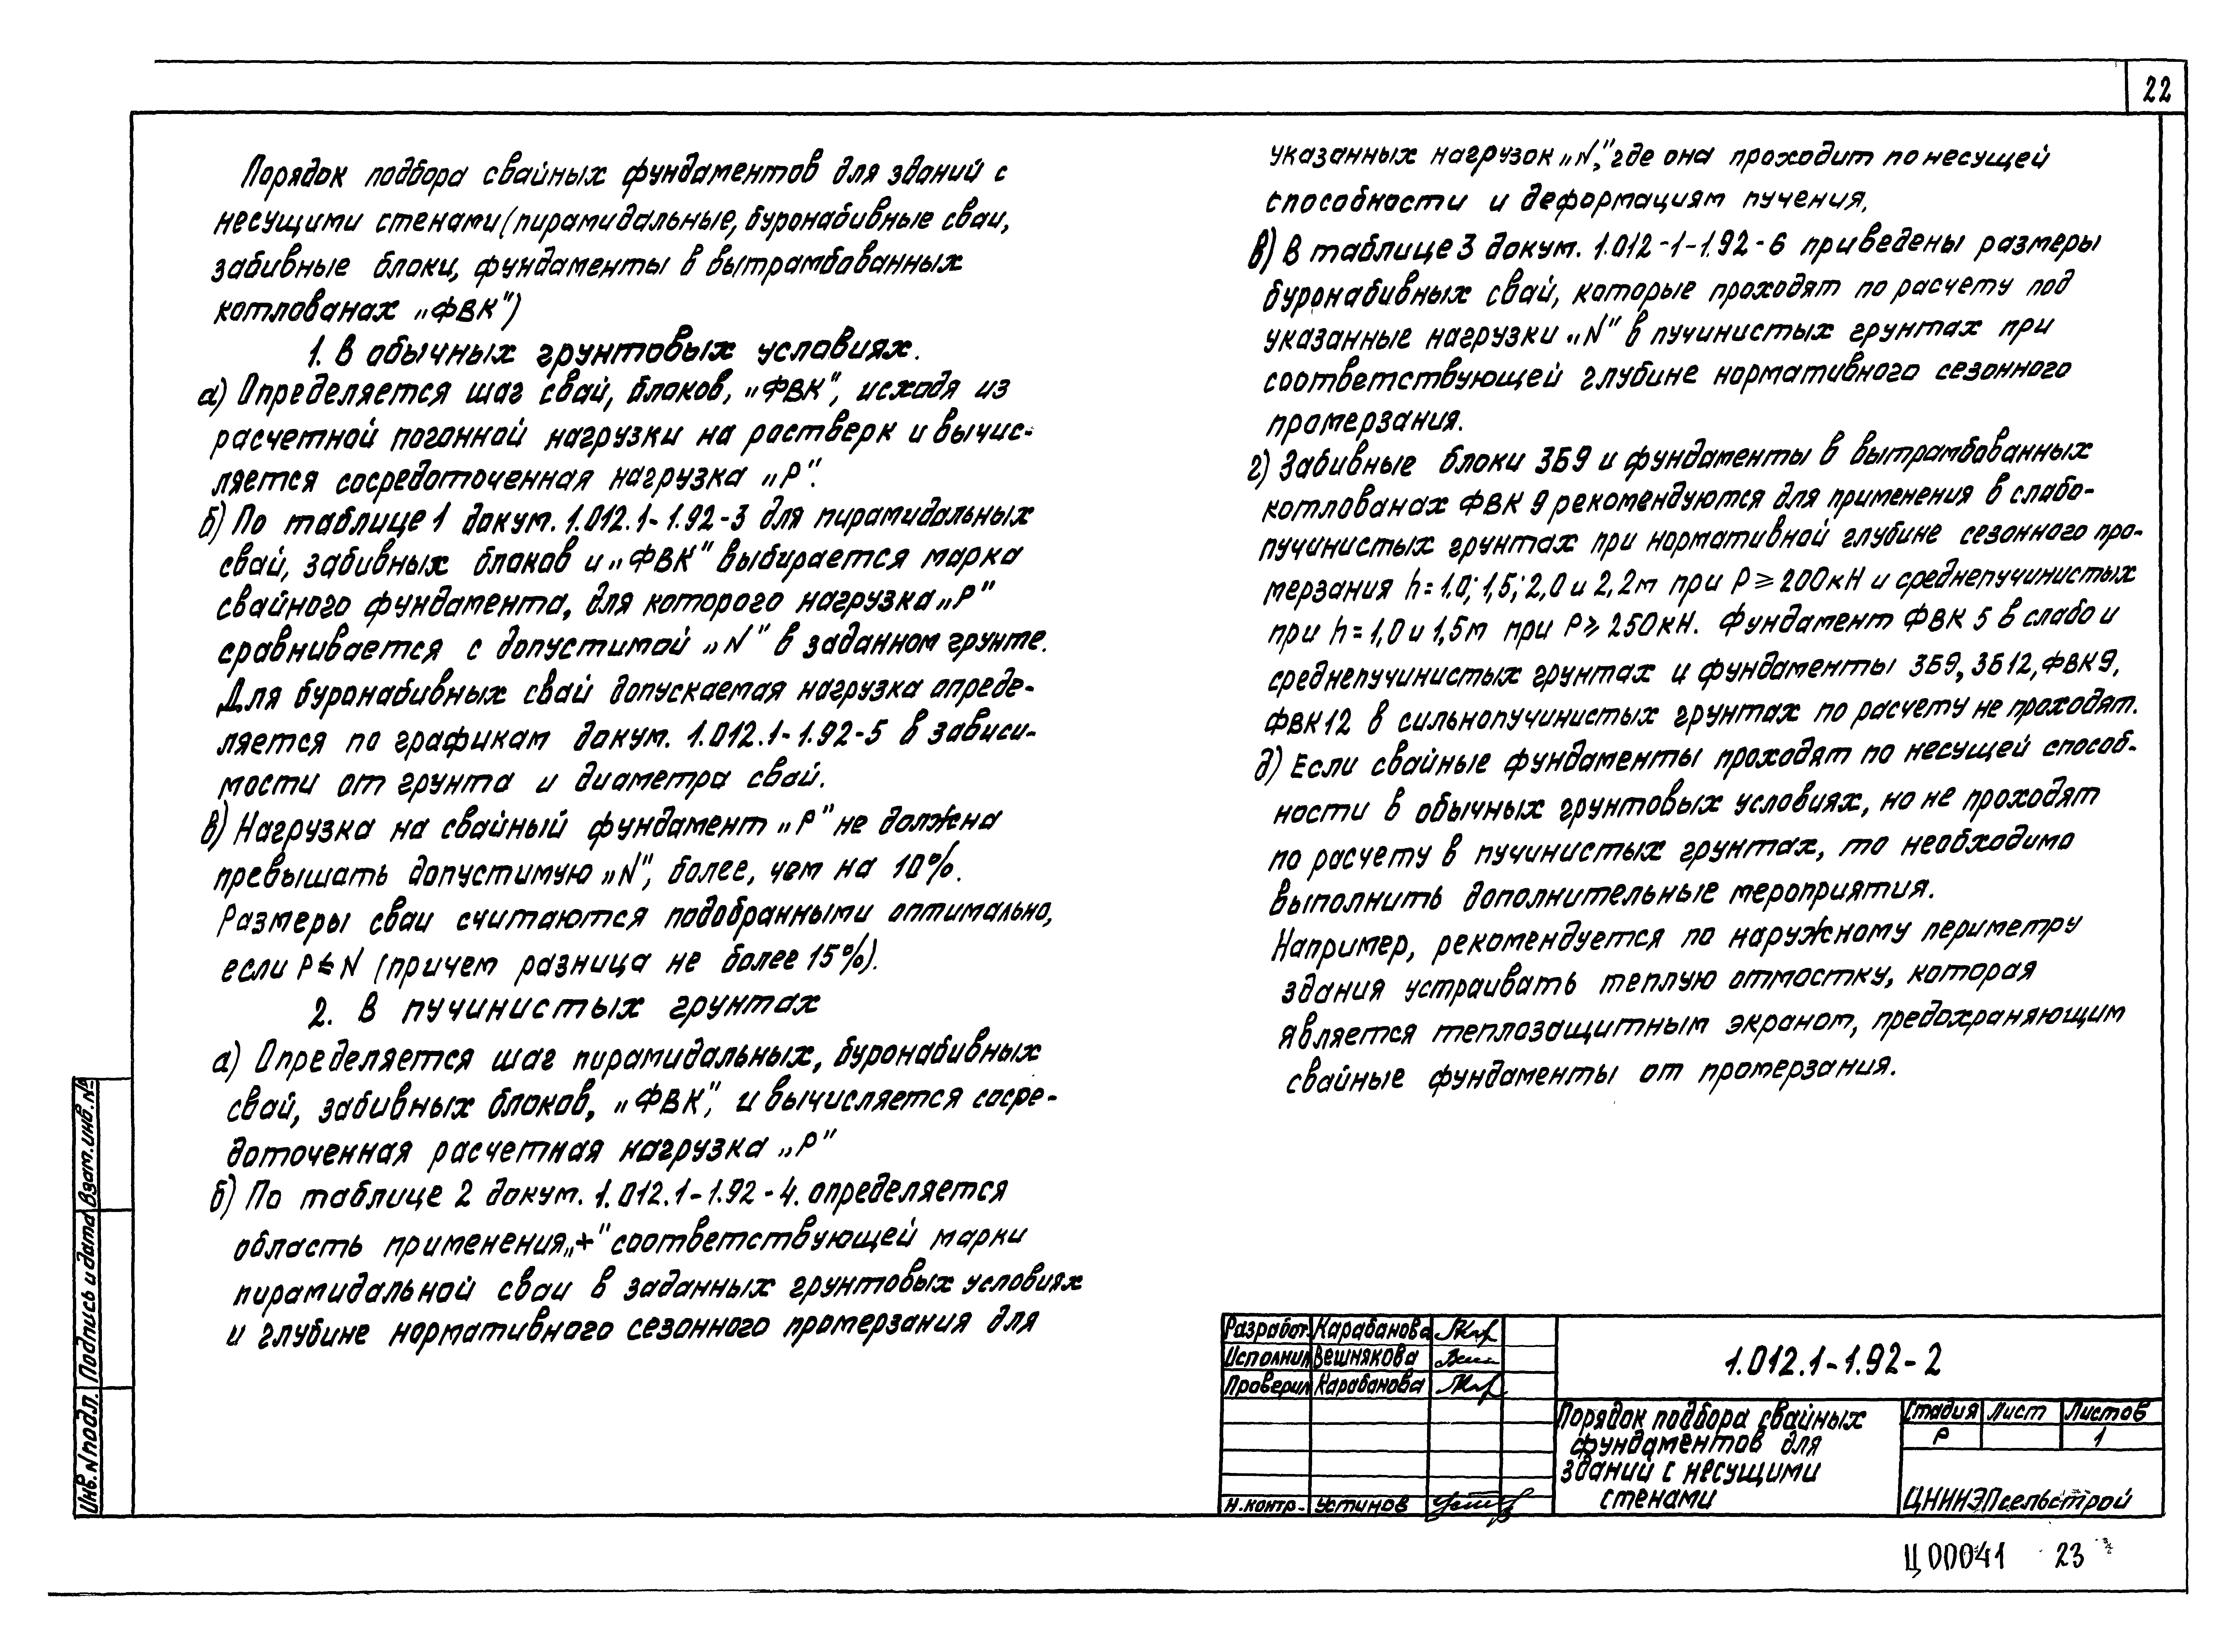 22
Порядок подбора свайных фундаментов для зданий с
несущими стенами (пирамидальные, буронабивные сваи,
забивные блоки, фундаменты в вытрамбованных
котлованах „ФВК")
1. В обычных грунтовых условиях.
а) Определяется шаг свай, блоков, „ФВК", исходя из
расчетной погонной нагрузки на ростверк и вычис-
ляется сосредоточенная нагрузка „Р".
б) По таблице 1 докум. 1.012.1-1.92-3 для пирамидальных
свай, забивных блоков и „ФВК" выбирается марка
свайного фундамента, для которого нагрузка „Р"
сравнивается с допустимой „N" в заданном грунте.
Для буронабивных свай допускаемая нагрузка опреде-
ляется по графикам докум. 1.012.1-1.92-5 в зависи-
мости от грунта и диаметра свай.
в) Нагрузка на свайный фундамент „Р" не должна
превышать допустимую „N", более, чем на 10%.
Размеры сваи считаются подобранными оптимально,
если Р≤N (причем разница не более 15%).
2. В пучинистых грунтах
а) Определяется шаг пирамидальных, буронабивных
свай, забивных блоков, „ФВК", и вычисляется сосре-
доточенная расчетная нагрузка „Р"
б) По таблице 2 докум. 1.012.1-1.92-4. определяется
область применения „+" соответствующей марки
пирамидальной сваи в заданных грунтовых условиях
и глубине нормативного сезонного промерзания для
указанных нагрузок „N", где она проходит по несущей
способности и деформациям пучения.
в) В таблице 3 докум. 1.012-1-1.92-6 приведены размеры
буронабивных свай, которые проходят по расчету под
указанные нагрузки „N" в пучинистых грунтах при
соответствующей глубине нормативного сезонного
промерзания.
г) Забивные блоки ЗБ9 и фундаменты в вытрамбованных
котлованах ФВК 9 рекомендуются для применения в слабо-
пучинистых грунтах при нормативной глубине сезонного про-
мерзания h=1.0; 1,5; 2,0 и 2,2м при Р ≥ 200кН и среднепучинистых
при h=1,0 и 1,5м при Р ≥ 250кН. Фундамент ФВК 5 в слабо и
среднепучинистых грунтах и фундаменты ЗБ9, ЗБ12, ФВК9,
ФВК12 в сильнопучинистых грунтах по расчету не проходят.
д) Если свайные фундаменты проходят по несущей способ-
ности в обычных грунтовых условиях, но не проходят
по расчету в пучинистых грунтах, то необходимо
выполнить дополнительные мероприятия.
Например, рекомендуется по наружному периметру
здания устраивать теплую отмостку, которая
является теплозащитным экраном, предохраняющим
свайные фундаменты от промерзания.
Взам.инв.№
Подпись и дата
Инв.№подл.
Разработ. Карабанова
Исполнил Вешнякова
Проверил Карабанова
Н.контр. Устинов
1.012.1-1.92-2
Порядок подбора свайных
фундаментов для
зданий с несущими
стенами
Стадия Лист Листов
Р 1
ЦНИИЭПсельстрой
Ц00041 23